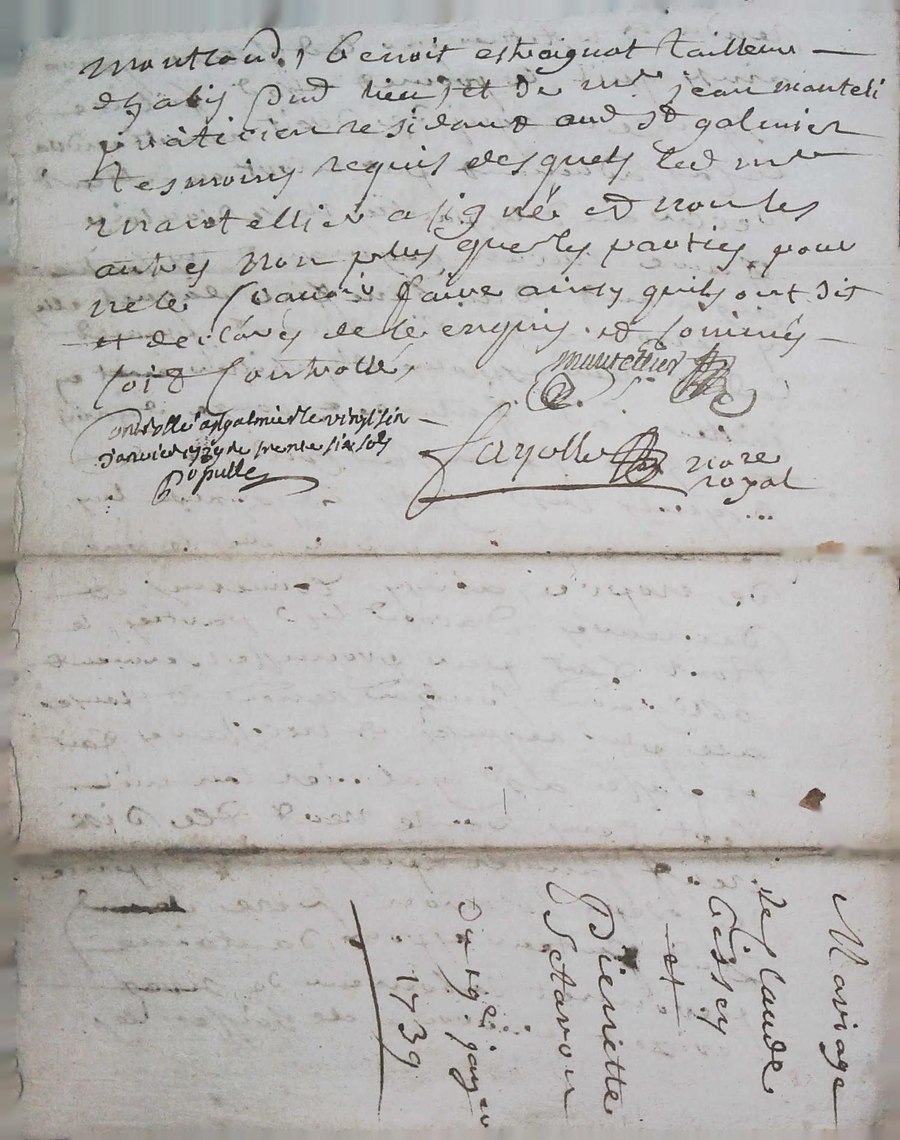 montrond, benoit estraignat tailleur
dhabis dud lieu, et de me jean manteli
praticien residant aud st galmier
tesmoins requis desquels led me
mantellier a signé et non les
autres non plus que les parties pour
ne le scavoir faire ainsy quils ont dit
et declarés de le enquis et sommés
soit controllé,
mantellier
controllé a st galmier le vingt six
janvier 1739 Re trente six sols
populle
fayolle nore
royal
Mariage
de Claude
et
Pierrette
du 19e janv
1739